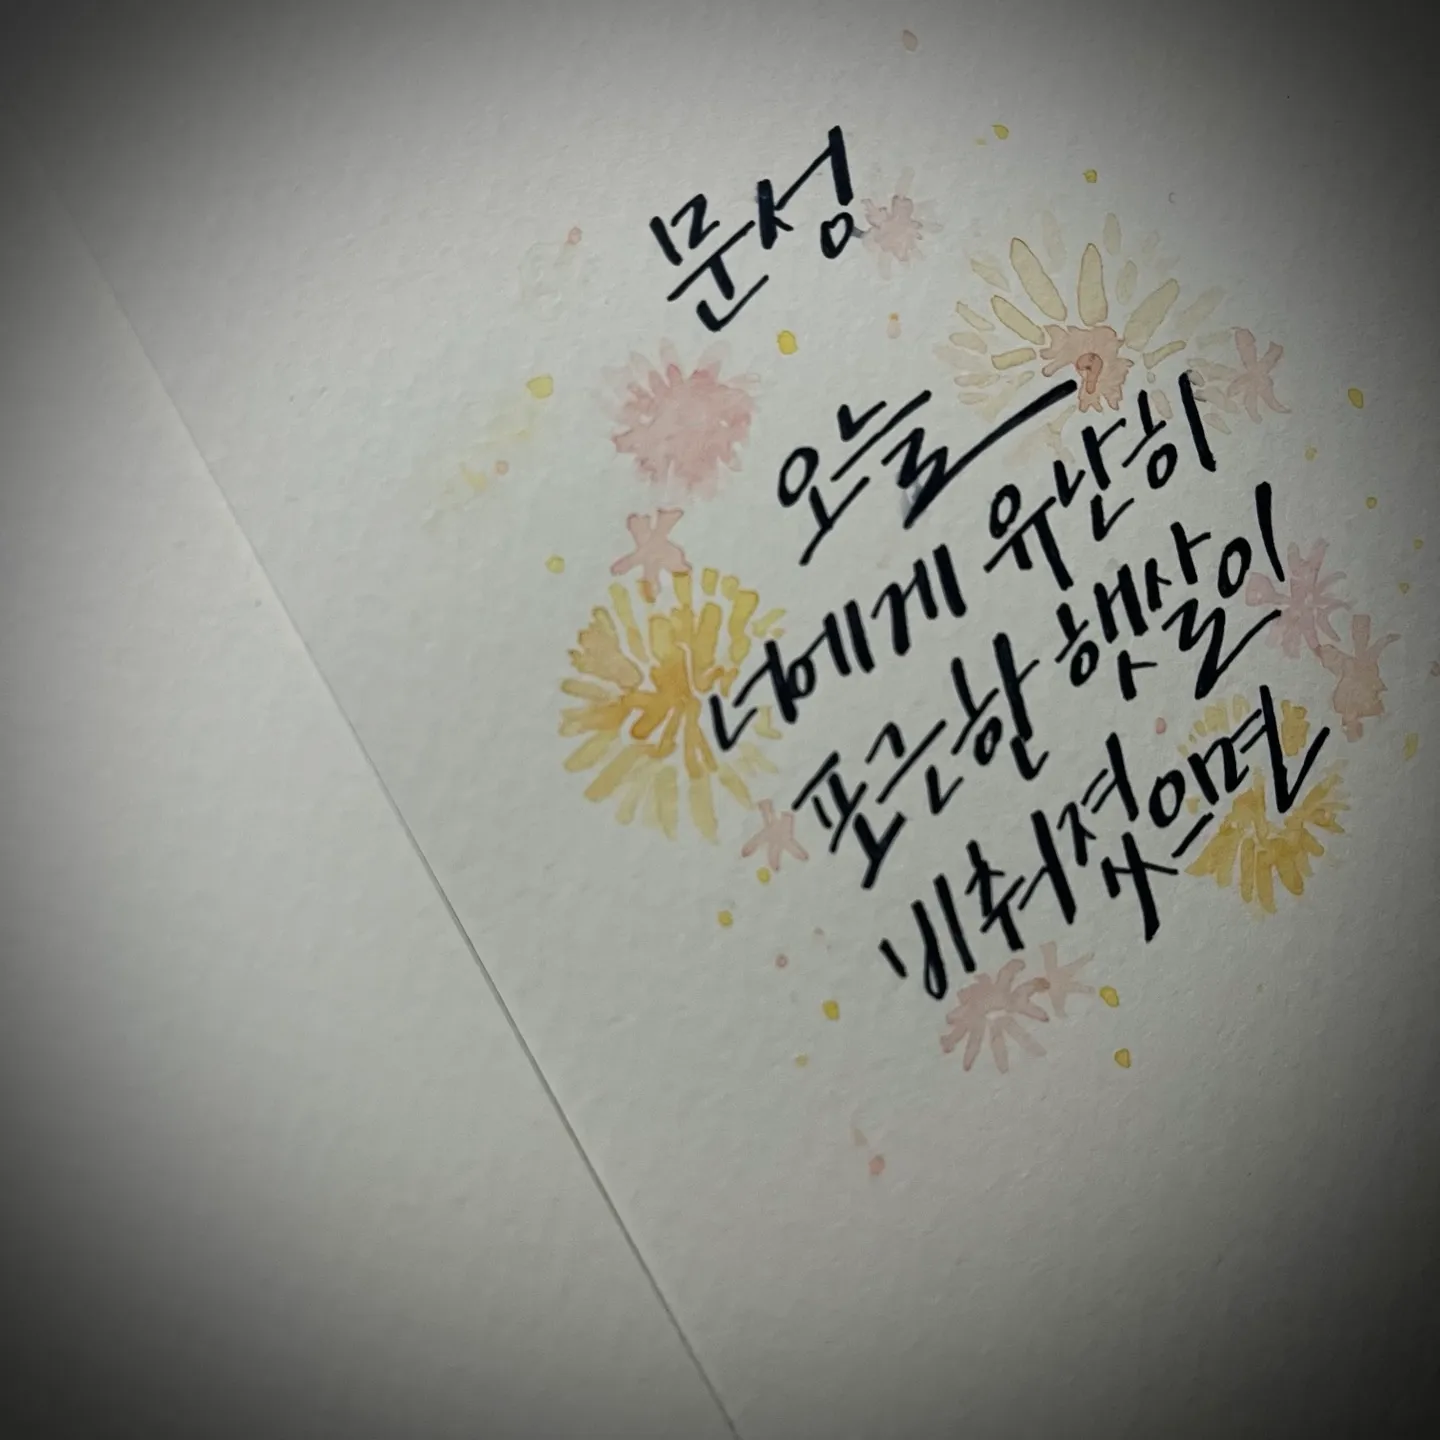 문성
오늘
너에게 유난히
포근한 햇살이
비춰졌으면